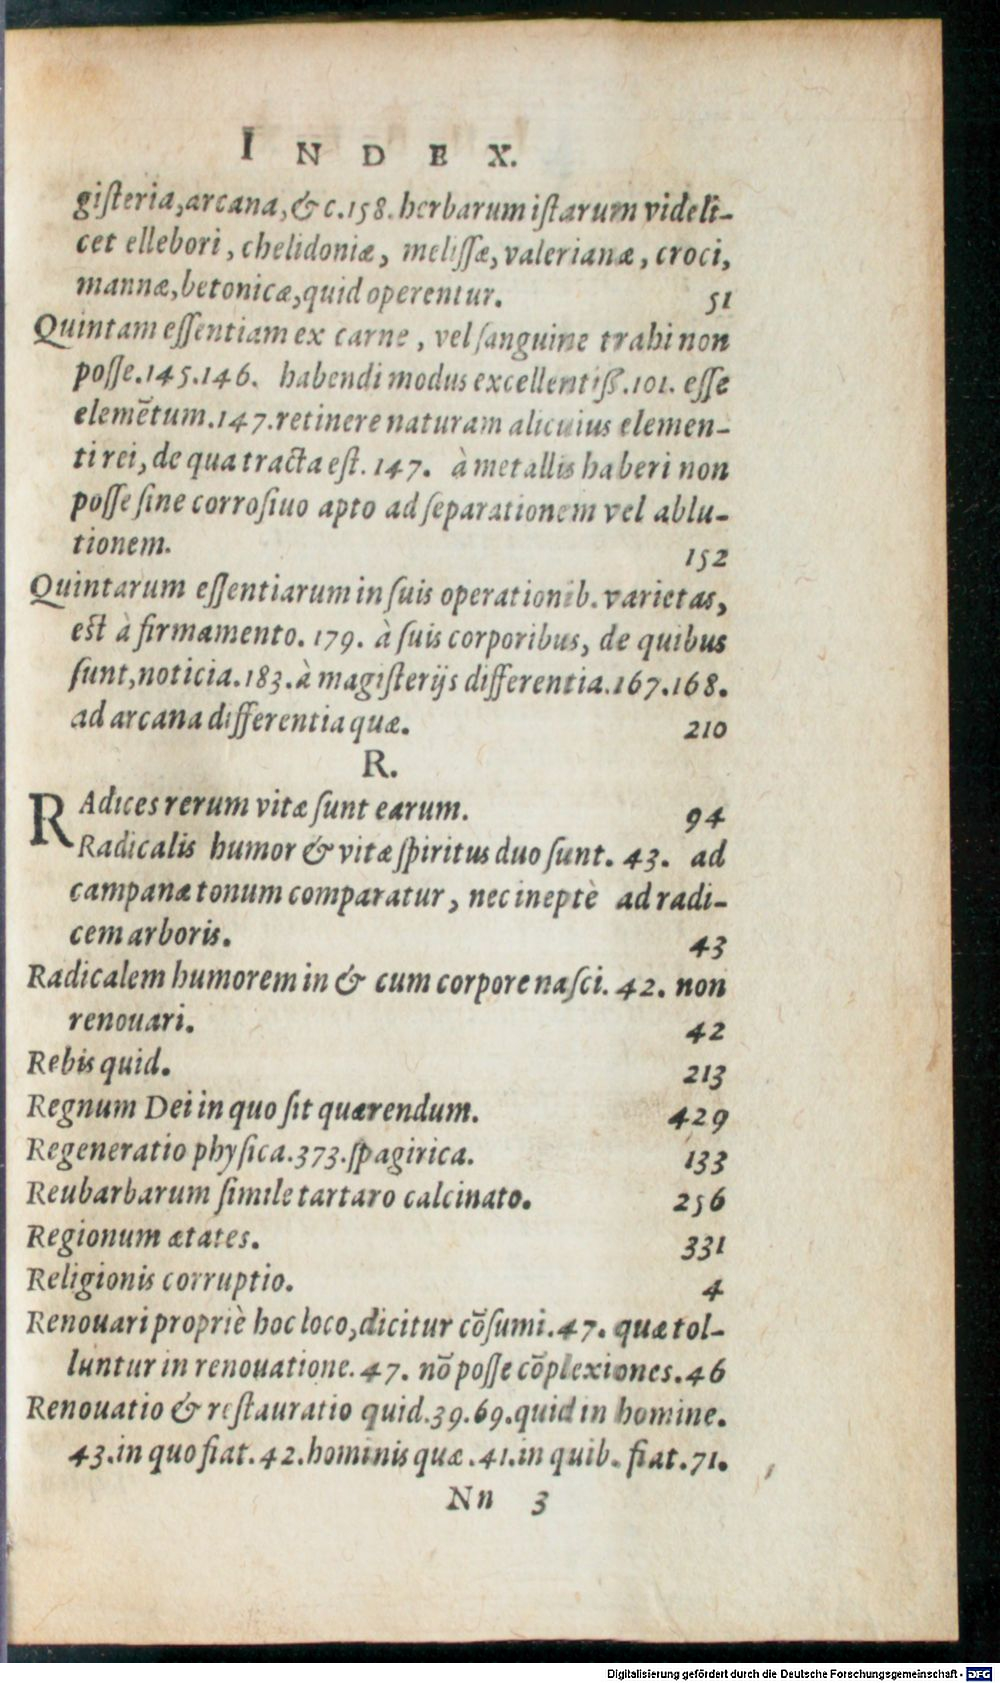 INDEX.
gisteria,arcana,&c.158.herbarum istarum videli-
cet ellebori, chelidoniæ, melissæ, valerianæ, croci,
mannæ, betonicæ, quid operentur. 51
Quintam essentiam ex carne, vel sanguine trahi non
posse.145.146. habendi modus excellentiß.101. esse
elemētum.147.retinere naturam alicuius elemen-
ti rei, de qua tracta est. 147. à metallis haberi non
posse sine corrosiuo apto ad separationem vel ablu-
tionem. 152
Quintarum essentiarum in suis operationib. varietas,
est à firmamento. 179. à suis corporibus, de quibus
sunt, noticia.183.à magisterijs differentia.167.168.
ad arcana differentia quæ. 210
R.
RAdices rerum vitæ sunt earum. 94
Radicalis humor & vitæ spiritus duo sunt. 43. ad
campanæ tonum comparatur, nec ineptè ad radi-
cem arboris. 43
Radicalem humorem in & cum corpore nasci. 42. non
renouari. 42
Rebis quid. 213
Regnum Dei in quo sit quærendum. 429
Regeneratio physica.373.spagirica. 133
Reubarbarum simile tartaro calcinato. 256
Regionum ætates. 331
Religionis corruptio. 4
Renouari propriè hoc loco, dicitur cōsumi.47. quæ tol-
luntur in renouatione. 47. nō posse cōplexiones.46
Renouatio & restauratio quid.39.69.quid in homine.
43.in quo fiat.42.hominis quæ.41.in quib. fiat.71.
Nn 3
Digitalisierung gefördert durch die Deutsche Forschungsgemeinschaft - DFG